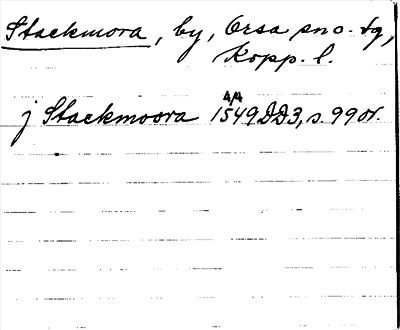 Stackmora, by, Orsa sn o. tg,
Kopp. l.
j Stackmoora 15 4/4 49 DD3, s. 99 or.